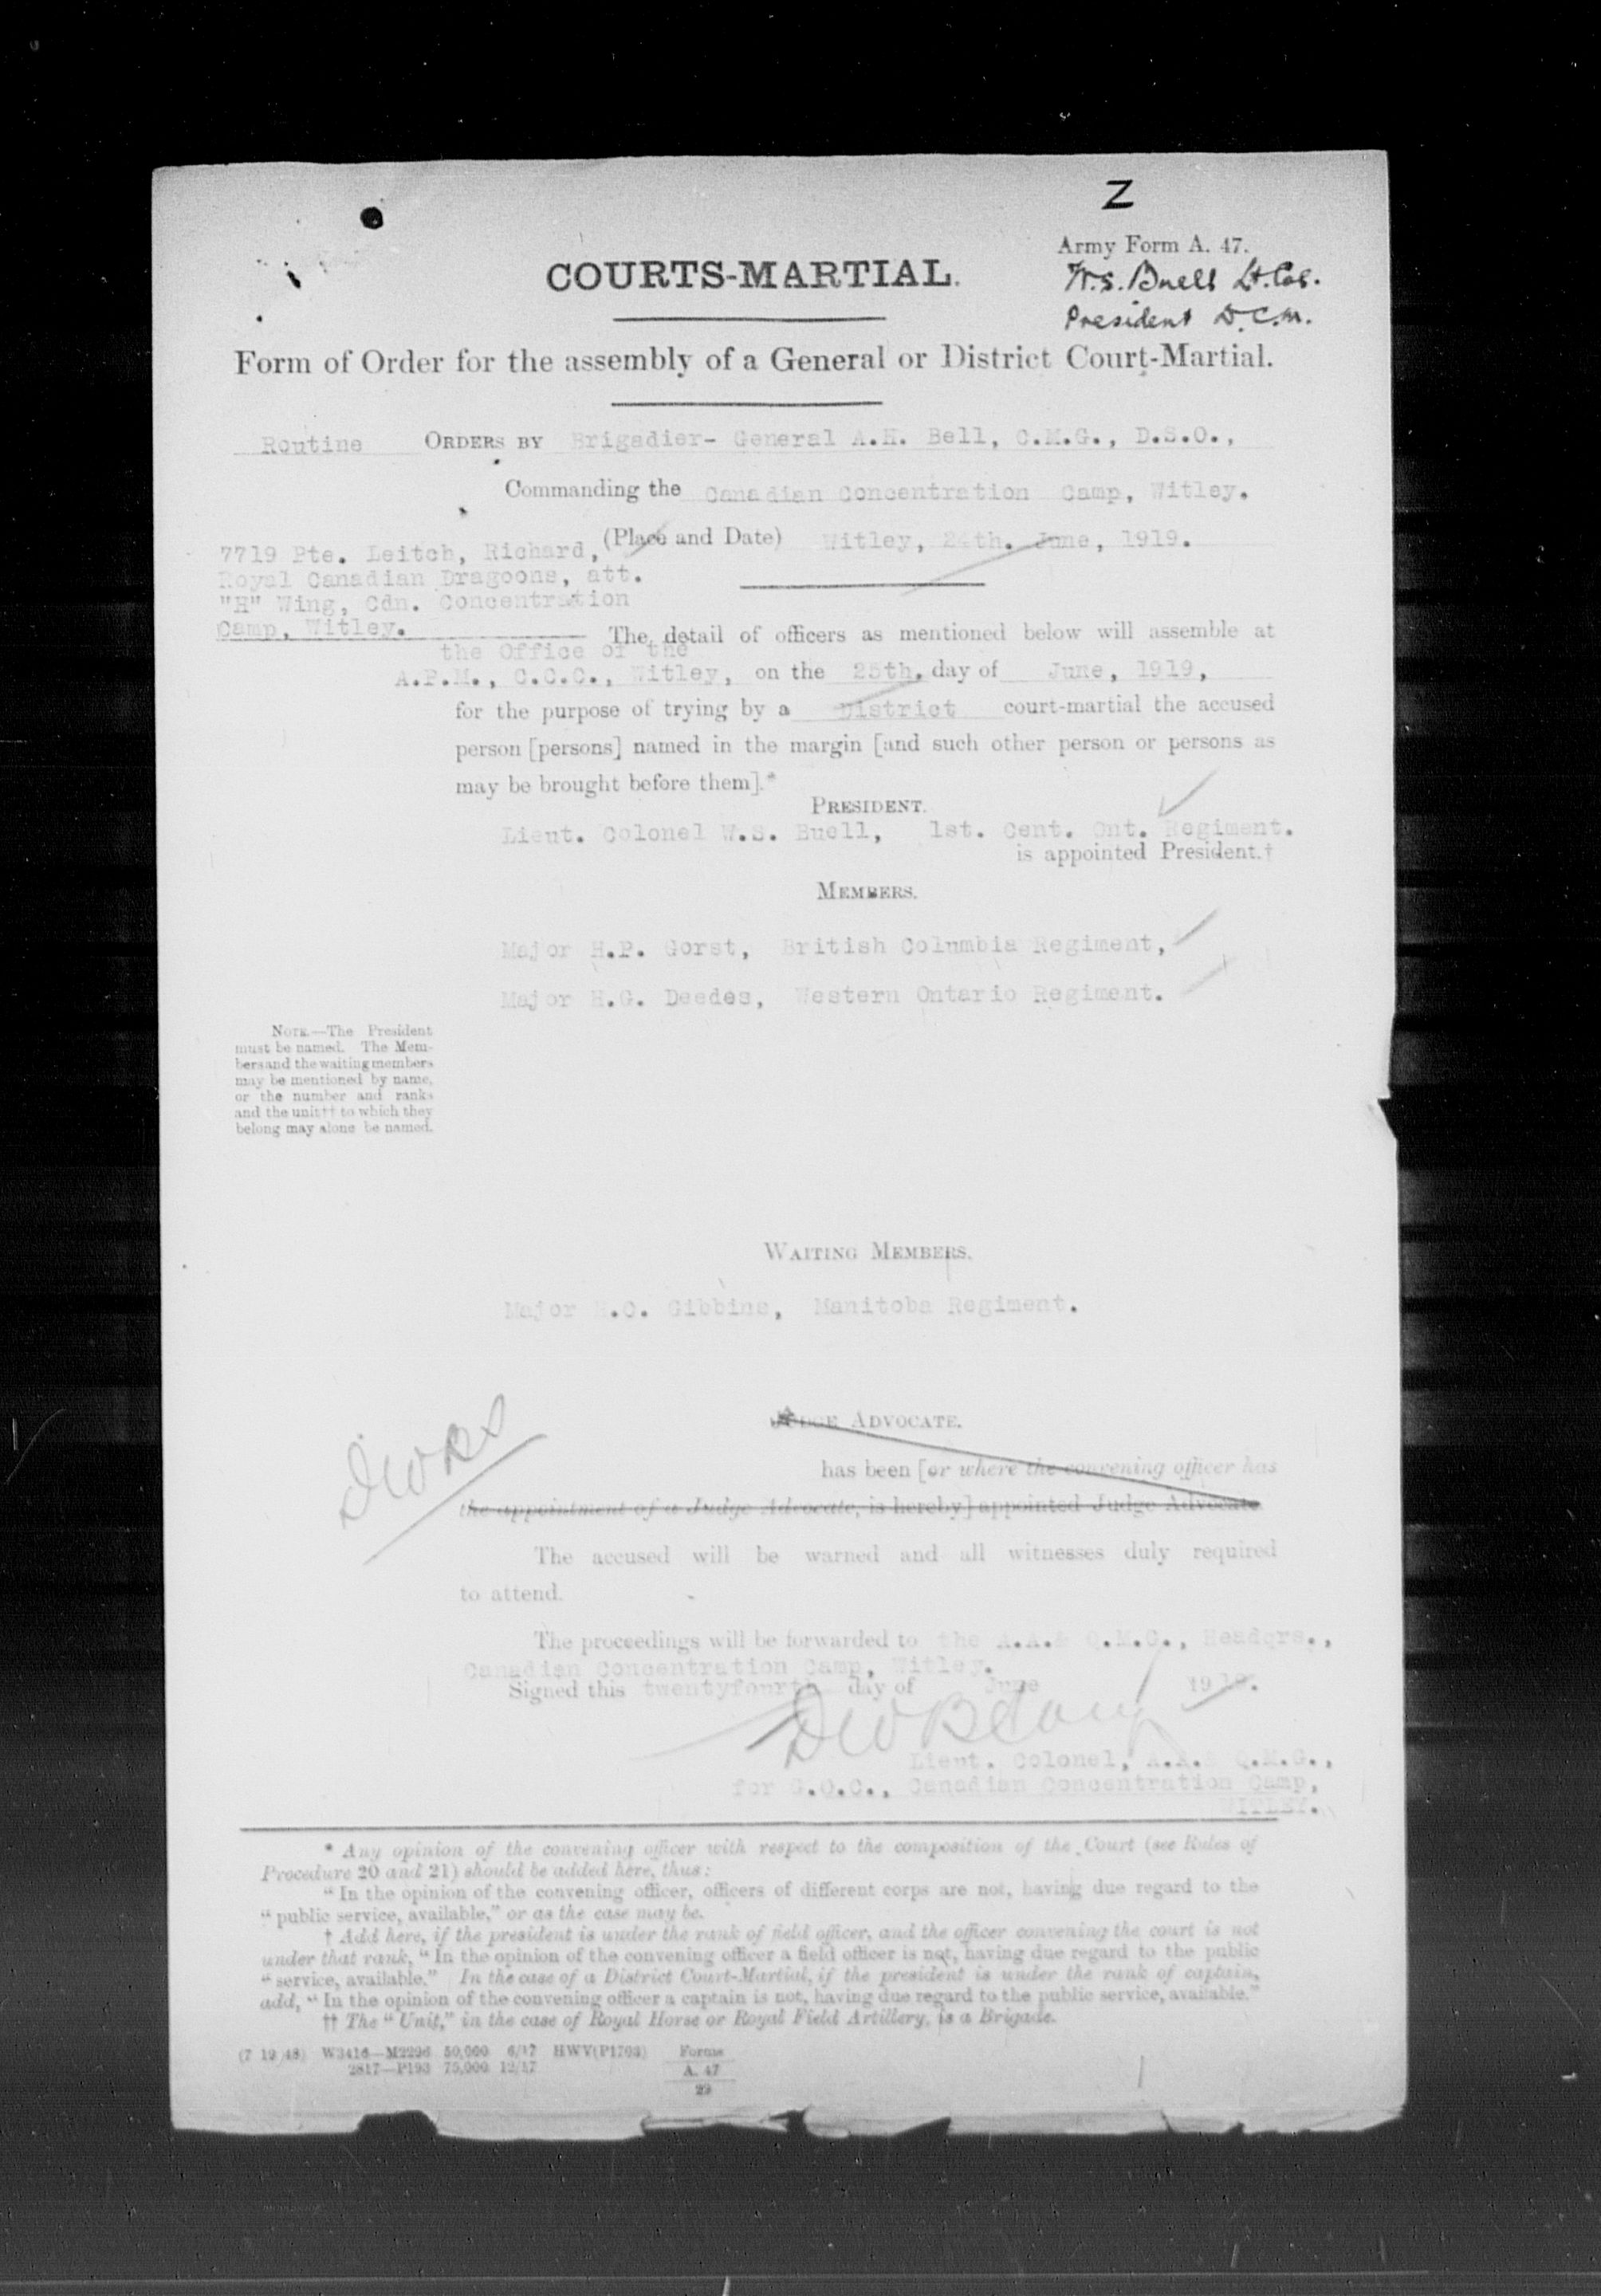 Z
Army Form A. 47.
W.S. Buell Lt. Col.
President D.C.M.
COURTS-MARTIAL.
Form of Order for the assembly of a General or District Court-Martial.
Routine ORDERS BY Brigadier- General A.H. Bell, C.M.G., D.S.O.,
Commanding the Canadian Concentration Camp, Witley.
(Place and Date) Witley, 24th. June, 1919.
7719 Pte. Leitch, Richard,
Royal Canadian Dragoons, att.
"H" Wing, Cdn. Concentration
Camp, Witley.
The detail of officers as mentioned below will assemble at
the Office of the
A.P.M., C.C.C., Witley, on the 25th. day of June, 1919,
for the purpose of trying by a District court-martial the accused
person [persons] named in the margin [and such other person or persons as
may be brought before them].*
PRESIDENT.
Lieut. Colonel W.S. Buell, 1st. Cent. Ont. Regiment.
is appointed President.†
MEMBERS.
Major H.P. Gorst, British Columbia Regiment,
Major H.G. Deedes, Western Ontario Regiment.
NOTE.—The President
must be named. The Mem-
bers and the waiting members
may be mentioned by name,
or the number and ranks
and the unit†† to which they
belong may alone be named.
WAITING MEMBERS.
Major H.C. Gibbins, Manitoba Regiment.
JUDGE ADVOCATE.
has been [or where the convening officer has
the appointment of a Judge Advocate, is hereby] appointed Judge Advocate
The accused will be warned and all witnesses duly required
to attend.
The proceedings will be forwarded to the A.A.& Q.M.G., Headqrs.,
Canadian Concentration Camp, Witley.
Signed this twentyfourth day of June 1919.
Lieut. Colonel, A.A.& Q.M.G.,
for G.O.C., Canadian Concentration Camp,
WITLEY.
* Any opinion of the convening officer with respect to the composition of the Court (see Rules of
Procedure 20 and 21) should be added here, thus:
“ In the opinion of the convening officer, officers of different corps are not, having due regard to the
“ public service, available,” or as the case may be.
† Add here, if the president is under the rank of field officer, and the officer convening the court is not
under that rank, “ In the opinion of the convening officer a field officer is not, having due regard to the public
“ service, available.” In the case of a District Court-Martial, if the president is under the rank of captain,
add, “ In the opinion of the convening officer a captain is not, having due regard to the public service, available.”
†† The “ Unit,” in the case of Royal Horse or Royal Field Artillery, is a Brigade.
(7 19 48) W3416—M2296 50,000 6/17 HWV(P1703) Forms
2817—P193 75,000 12/17 A. 47